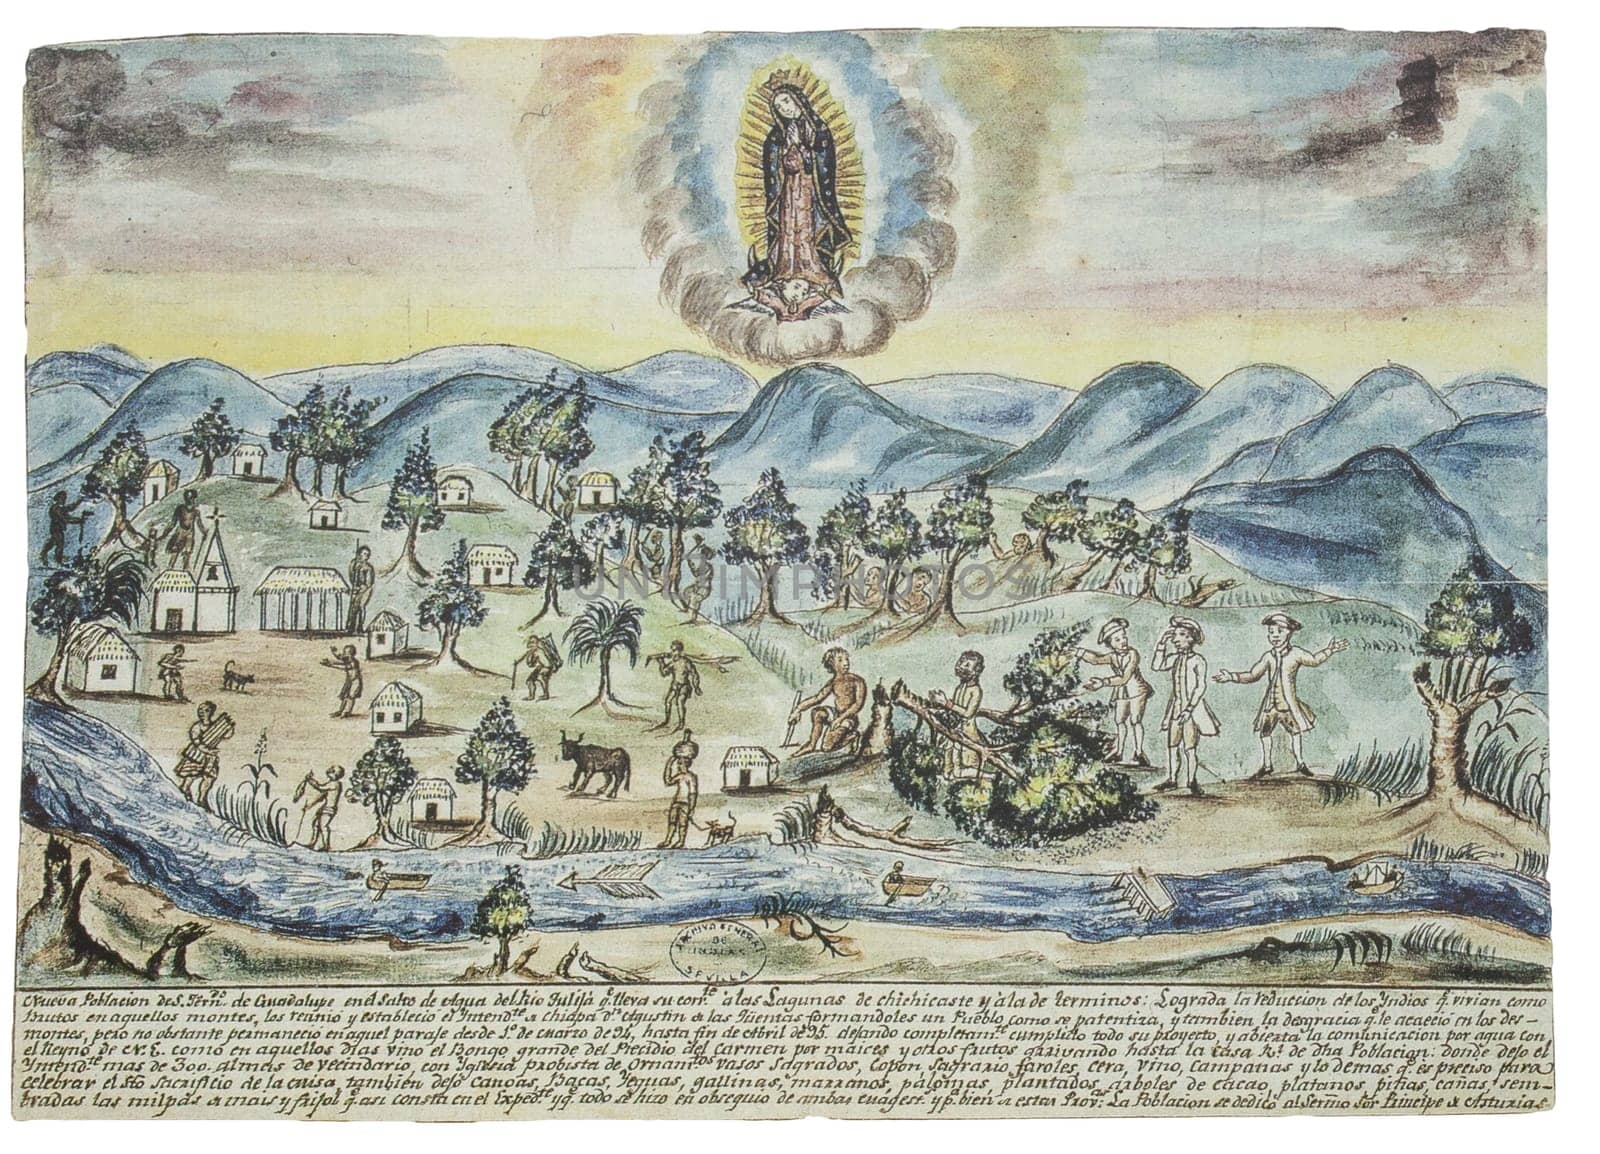 UNLIIMPHOTOS
ARCHIVO GENERAL
DE
INDIAS
SEVILLA
Nueva Poblacion de S. Fern.do de Guadalupe en el Salto de Agua del Rio Tulijá q.e lleva su corr.te a las Lagunas de chichicaste y á la de terminos: Lograda la reduccion de los Yndios q.e vivian como
brutos en aquellos montes, los reunió y estableció el Yntend.te de chiapa d.n Agustin de las Qüentas formandoles un Pueblo como se patentiza, y tambien la desgracia q.e le acaeció en los des-
montes, pero no obstante permaneció en aquel paraje desde 1.º de Marzo de 94, hasta fin de Abril de 95. dejando completam.te cumplido todo su proyecto, y abierta la comunicacion por agua con
el Reyno de N. E. como en aquellos dias vino el Bongo grande del Presidio del Carmen por maices y otros frutos arrivando hasta la casa R.l de dha Poblacion: donde dejo el
Yntend.te mas de 300 almas de vecindario, con Yglesia probista de Ornam.tos vasos Sagrados, Copon Sagrario, faroles, cera, vino, campanas y lo demas q.e es preciso para
celebrar el sto Sacrificio de la misa, tambien dejó Canoas, Bacas, Yeguas, gallinas, marranos, palomas, plantados arboles de cacao, platanos, piñas, cañas, sem-
bradas las milpas de mais y frijol q.e asi consta en el Exped.te y q.e todo se hizo en obsequio de ambas magest.s y p.r bien de esta Prov.a La Poblacion se dedicó al Sermo Sor Principe de Asturias